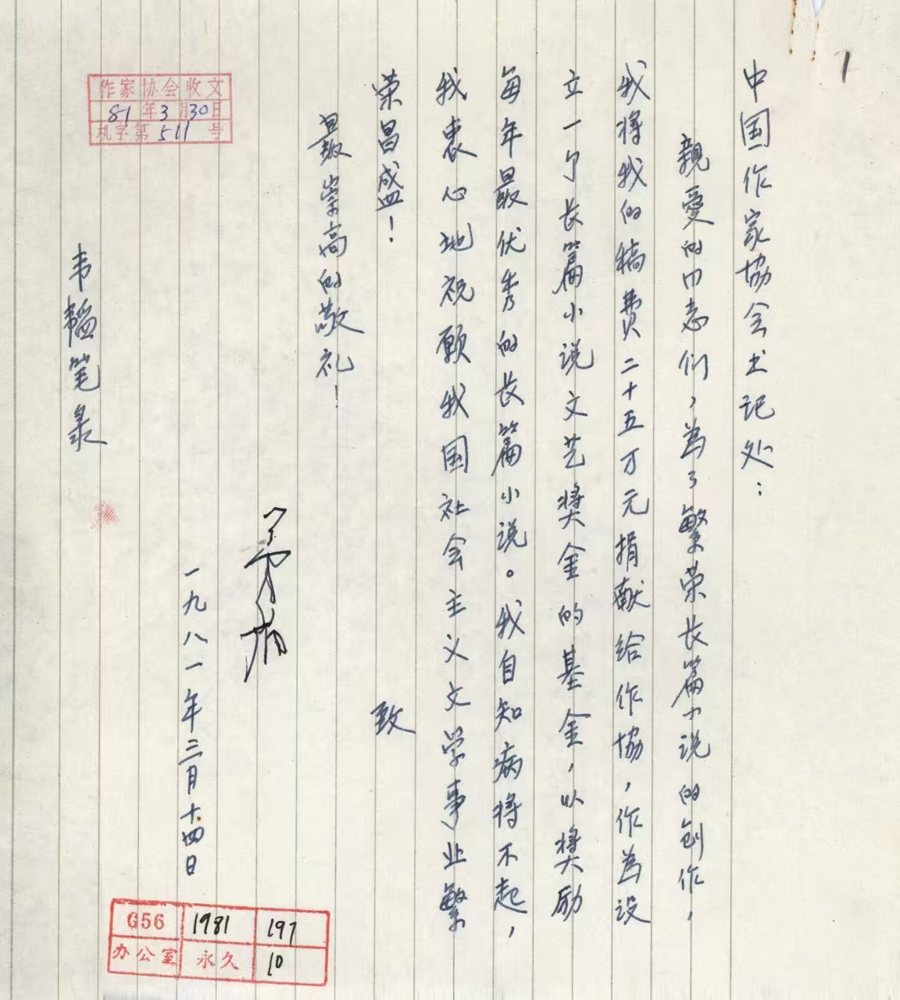 1
中国作家协会书记处：
親爱的同志们，為了繁荣长篇小说的创作，
我将我的稿费二十五万元捐献给作協，作為设
立一个长篇小说文艺奖金的基金，以奖励
每年最优秀的长篇小说。我自知病将不起，
我衷心地祝愿我国社会主义文学事业繁
荣昌盛！
致
最崇高的敬礼！
茅盾
一九八一年三月十四日
韦韬笔录
作家协会收文
81年3月30日
机字第511号
G56 1981 197
办公室 永久 10